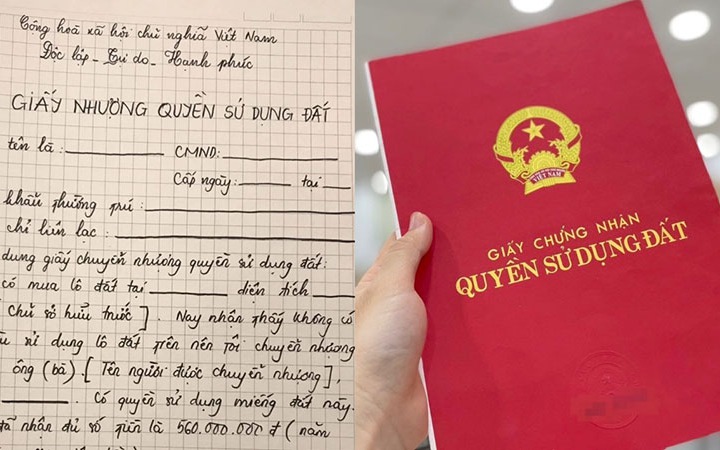 Cộng hoà xã hội chủ nghĩa Việt Nam
Độc lập - Tự do - Hạnh phúc
GIẤY NHƯỢNG QUYỀN SỬ DỤNG ĐẤT
tên là : CMND:
Cấp ngày: tại
khẩu thường trú :
chỉ liên lạc :
dung giấy chuyển nhượng quyền sử dụng đất:
có mua lô đất tại diện tích
chủ sở hữu trước ] . Nay nhận thấy không có
sử dụng lô đất trên nên tôi chuyển nhượng
ông (bà) . [ Tên người được chuyển nhượng ],
. Có quyền sử dụng miếng đất này.
đã nhận đủ số tiền là 560.000.000 đ ( năm
VIỆT NAM
GIẤY CHỨNG NHẬN
QUYỀN SỬ DỤNG ĐẤT